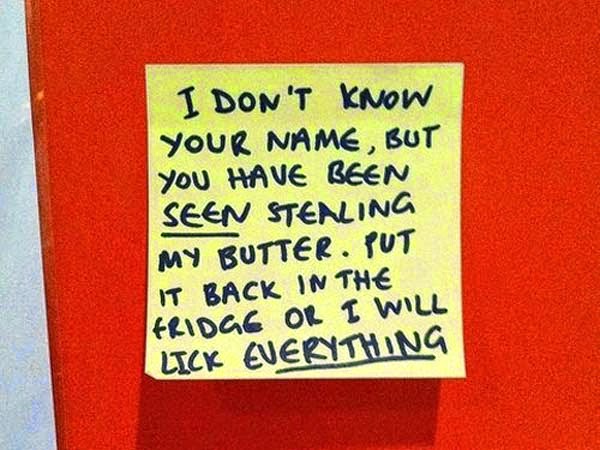 I DON'T KNOW
YOUR NAME, BUT
YOU HAVE BEEN
SEEN STEALING
MY BUTTER. PUT
IT BACK IN THE
FRIDGE OR I WILL
LICK EVERYTHING